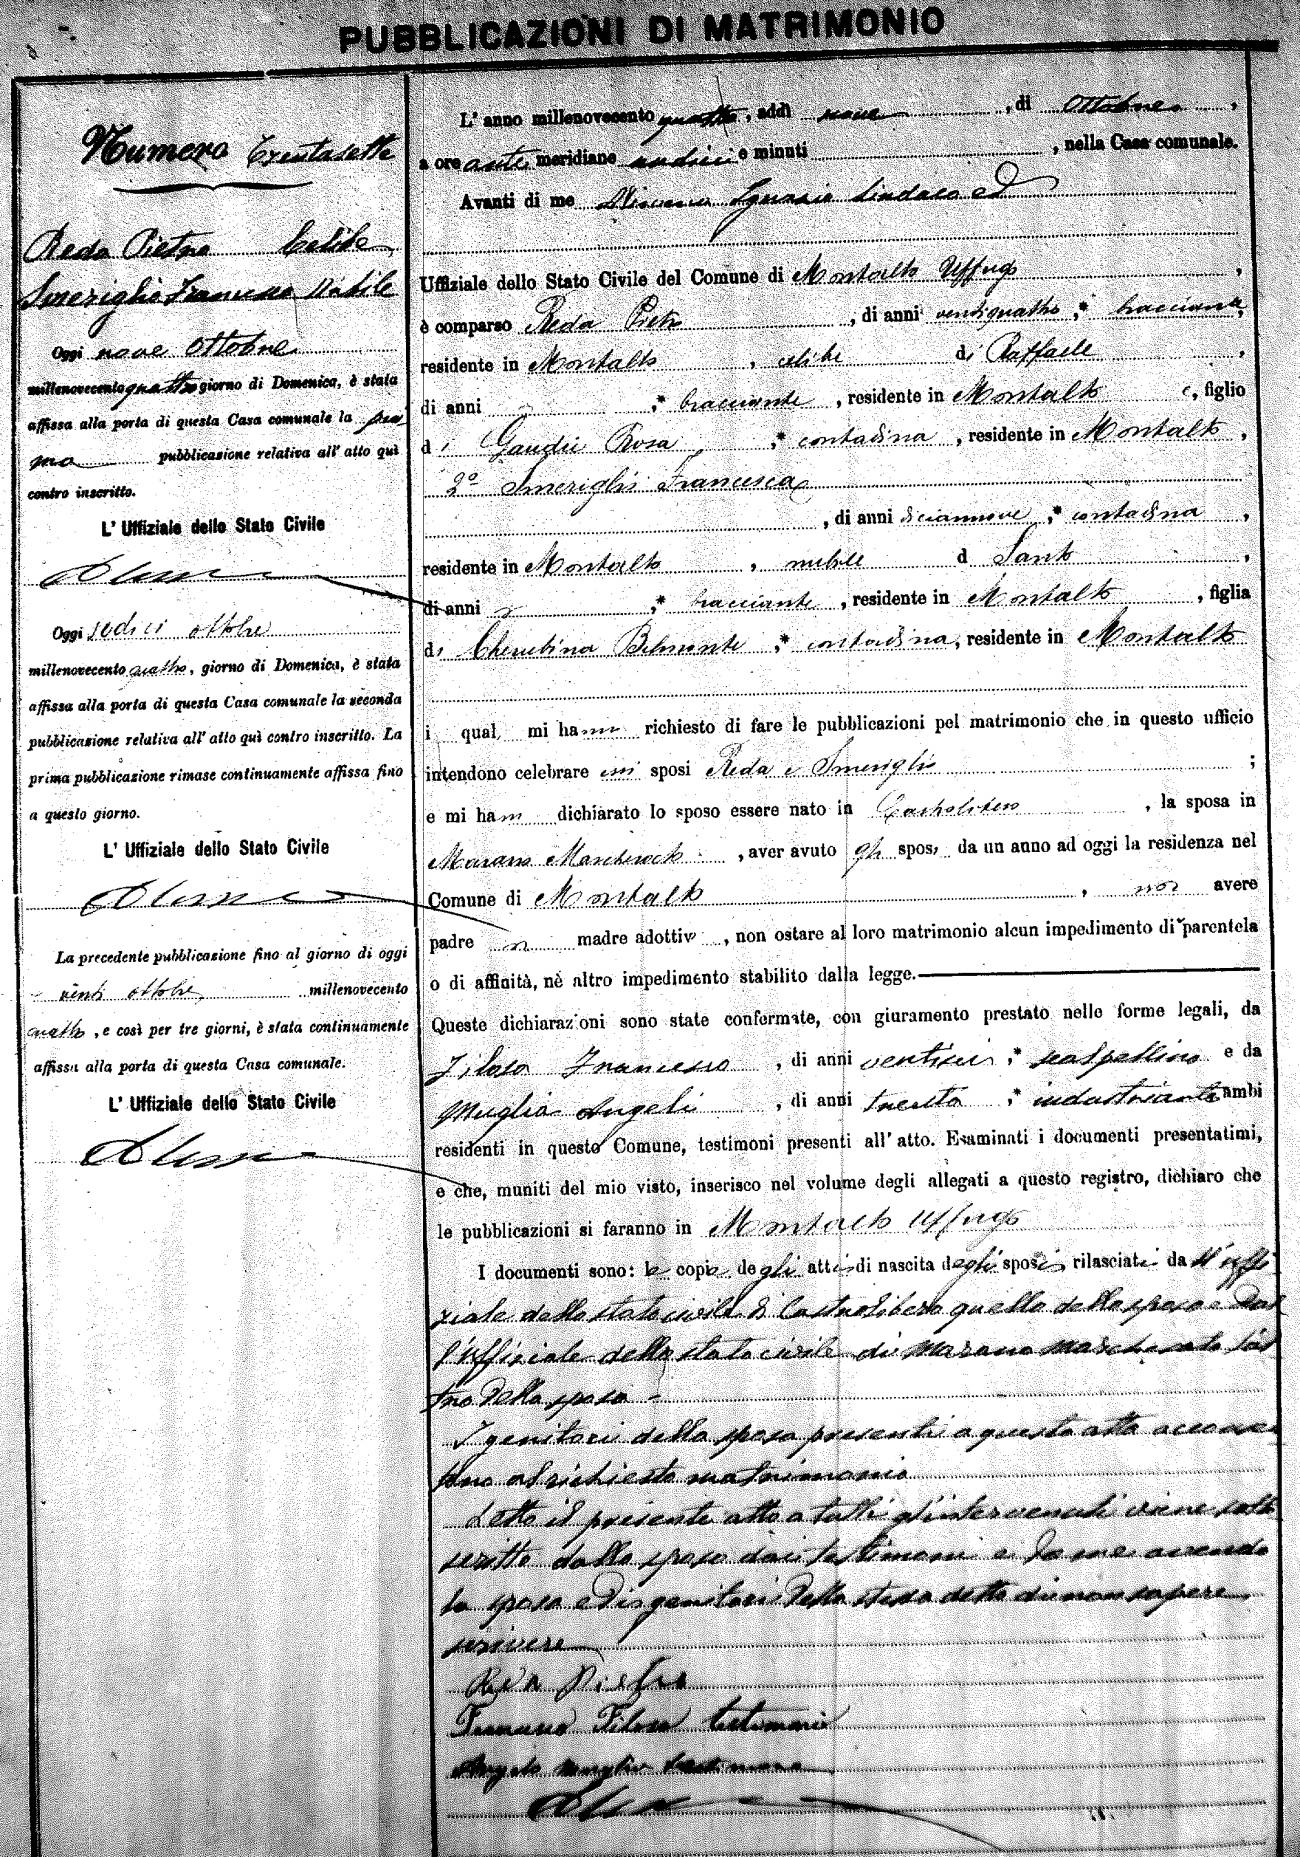 PUBBLICAZIONI DI MATRIMONIO
Numero Trentasette
Reda Pietro Celibe
Smeriglio Francesca Nubile
Oggi nove Ottobre
millenovecento quattro giorno di Domenica, è stata
affissa alla porta di questa Casa comunale la pri
ma pubblicazione relativa all' atto quì
contro inscritto.
L' Uffiziale dello Stato Civile
Oggi sedici ottobre
millenovecento quattro, giorno di Domenica, è stata
affissa alla porta di questa Casa comunale la seconda
pubblicazione relativa all' atto quì contro inscritto. La
prima pubblicazione rimase continuamente affissa fino
a questo giorno.
L' Uffiziale dello Stato Civile
La precedente pubblicazione fino al giorno di oggi
venti ottobre millenovecento
quattro, e così per tre giorni, è stata continuamente
affissa alla porta di questa Casa comunale.
L' Uffiziale dello Stato Civile
L' anno millenovecento quattro, addì nove, di Ottobre,
a ore anti meridiane undici e minuti , nella Casa comunale.
Avanti di me Ignazio Sindaco ed
Uffiziale dello Stato Civile del Comune di Montalto Uffugo,
è comparso Reda Pietro, di anni ventiquattro,* bracciante,
residente in Montalto, celibe di Raffaele,
di anni ,* bracciante, residente in Montalto e, figlio
di Gaudio Rosa,* contadina, residente in Montalto,
2º Smeriglio Francesca
, di anni diciannove,* contadina,
residente in Montalto, nubile d Santo,
di anni ,* bracciante, residente in Montalto, figlia
di Cherubina Belmonte,* contadina, residente in Montalto
i qual mi hanno richiesto di fare le pubblicazioni pel matrimonio che in questo ufficio
intendono celebrare essi sposi Reda e Smeriglio;
e mi hann dichiarato lo sposo essere nato in Castrolibero, la sposa in
Marano Marchesato, aver avuto gli sposi da un anno ad oggi la residenza nel
Comune di Montalto, non avere
padre n madre adottiv , non ostare al loro matrimonio alcun impedimento di parentela
o di affinità, nè altro impedimento stabilito dalla legge.
Queste dichiarazioni sono state confermate, con giuramento prestato nelle forme legali, da
Filosa Francesco, di anni ventisei,* scalpellino e da
Muglia Angelo, di anni trenta,* industriante ambi
residenti in questo Comune, testimoni presenti all' atto. Esaminati i documenti presentatimi,
e che, muniti del mio visto, inserisco nel volume degli allegati a questo registro, dichiaro che
le pubblicazioni si faranno in Montalto Uffugo
I documenti sono: le copie degli atti di nascita degli sposi, rilasciati da ll'uffi
ziale dello stato civile di Castrolibero quello dello sposo e dal
l'Uffiziale dello stato civile di Marano Marchesato l'al
tro della sposa =
I genitori della sposa presenti a questo atto acconsen
tono al richiesto matrimonio
Letto il presente atto a tutti gl'intervenuti viene sotto
scritto dallo sposo dai testimoni e da me avendo
la sposa e di genitori della stessa detto di non sapere
scrivere
Reda Pietro
Francesco Filosa testimonio
Angelo Muglia testimone